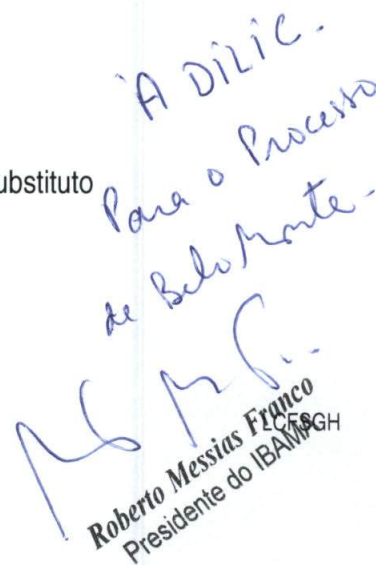 À DILIC.
ubstituto
Para o Processo
de Belo Monte.
Roberto Messias Franco
Presidente do IBAMA